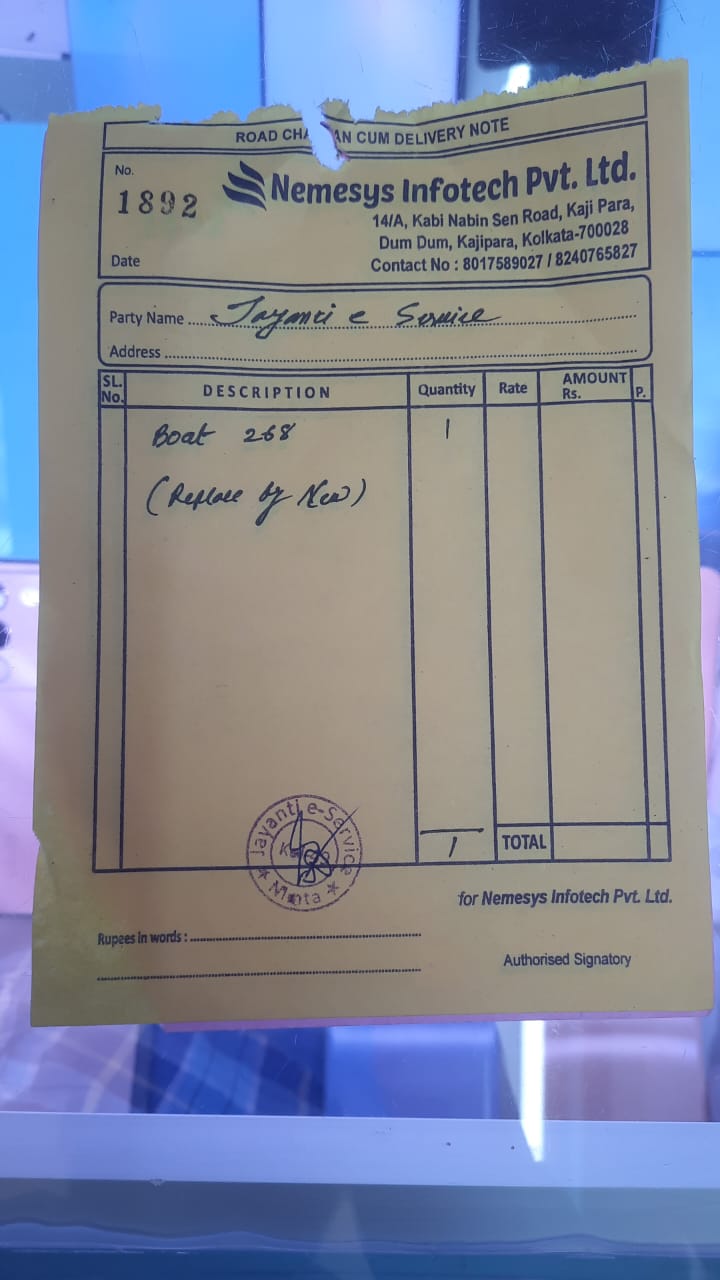 ROAD CHA AN CUM DELIVERY NOTE
No.
1892
Nemesys Infotech Pvt. Ltd.
14/A, Kabi Nabin Sen Road, Kaji Para,
Dum Dum, Kajipara, Kolkata-700028
Date
Contact No : 8017589027 / 8240765827
Party Name Jayanti e Service
Address
SL. No. DESCRIPTION Quantity Rate AMOUNT Rs. P.
Boat 268 1
(Replace by New)
1 TOTAL
Jayanti e-Service
for Nemesys Infotech Pvt. Ltd.
Rupees in words :
Authorised Signatory